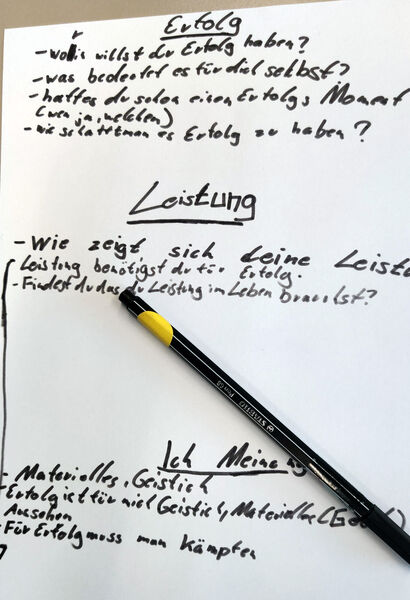 Erfolg
- woris willst du Erfolg haben?
- was bedeutet es für dich selbst?
- hattes du schon einen Erfolgs Moment
(wen ja, welchen)
- wie schafftman es Erfolg zu haben?
Leistung
- Wie zeigt sich deine Leist
Leistung benötigst du für Erfolg.
- Findest du das du Leistung im Leben brauchst?
STABILO
Ich Meine
- Materielles, Geistich
- Erfolg ist für mich Geistich, Materielles
Aussehen
- Für Erfolg muss man Kämpfen